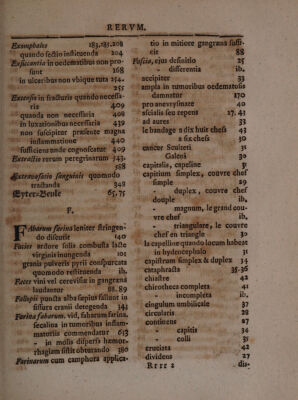 RERUM.
Exomphalus 183, 185, 208
quando sectio instituenda 204
Exsiccantia in oedematibus non pro-
sunt 268
in ulceribus non ubique tuta 254.
255
Extensio in fracturis quando necessa-
ria 409
quanda non necessaria 408
in luxationibus necessaria 439
non suscipitur præsente magna
inflammatione 440
sufficiens unde cognoscatur 409
Extractio rerum peregrinarum 543.
588
Extravasatio sanguinis quomodo
tractanda 348
Eyter-Beule 65. 75
F.
Fabarum farina leniter stringen-
do discutit 140
Facies ardore solis combusta lacte
virginis inungenda 101
granis pulveris pyrii conspurcata
quomodo restituenda ib.
Faeces vini vel cerevisiæ in gangræna
laudantur 88. 89
Fallopii puncta alba sæpius fallunt in
fissura cranii detegenda 341
Farina fabarum. vid, fabarum farina.
secalina in tumoribus inflam-
matoriis commendatur 613
- in mollis dispersis hæmor-
rhagiam sistit obturando 380
Farinarum cum camphora applica-
tio in mitiore gangræna suffi-
cit 88
Fascia, ejus definitio 25
- differentia ib.
accipiter 33
ampla in tumoribus oedematosis
damnatur 170
pro aneurysmate 40
ascialis seu repens 17. 41
ad aures 33
le bandage a dix huit chefs 43
a six chefs 30
cancer Sculteti 31
Galeni 30
capitalis, capeline 31
capitium simplex, couvre chef
simple 29
- duplex, couvre chef
double ib.
- magnum, le grand cou-
vre chef ib.
- triangulare, le couvre
chef en triangle 30
la capelline quando locum habeat
in hydrencephalo 31
capistrum simplex & duplex 34
cataphracta 35. 36
chiastre 42
chirotheca completa 41
- incompleta ib.
cingulum umbilicale 37
circularis 28
continens 27
- capitis 34
- colli 35
cruciata 42
dividens 27
Rrrr 2
dis-